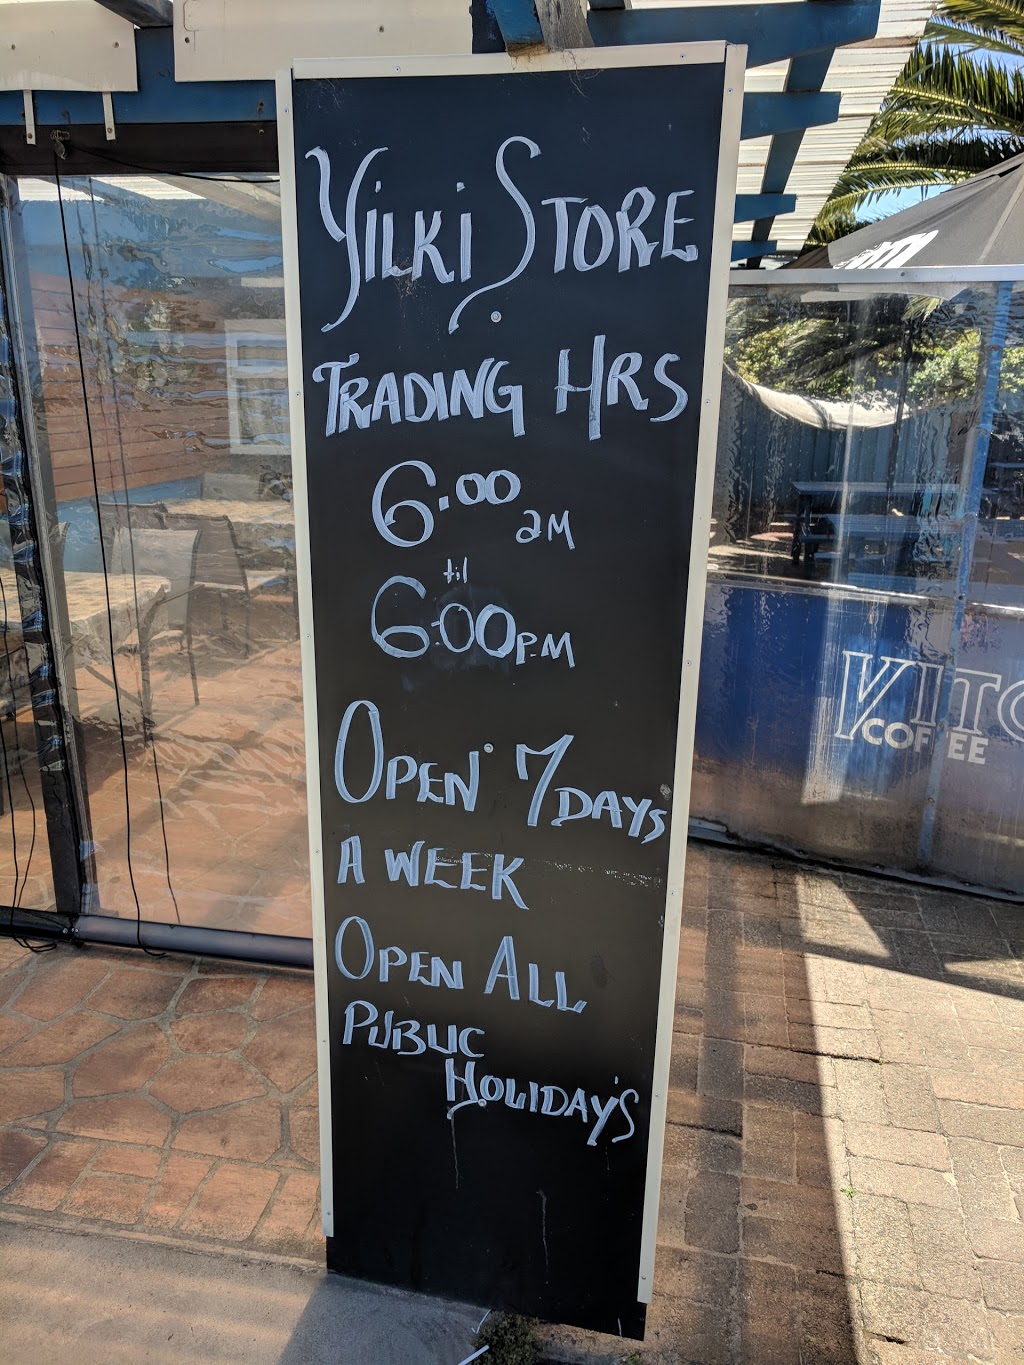 Yilki Store
Trading Hrs
6.00 am
til
6.00 P.M
Open 7 Days
A Week
Open All
Public
Holiday's
COFFEE